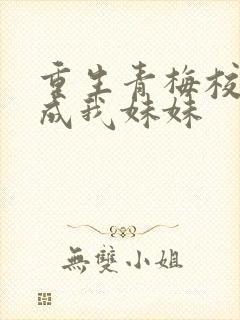 重生青梅校
成我妹妹
無雙小姐